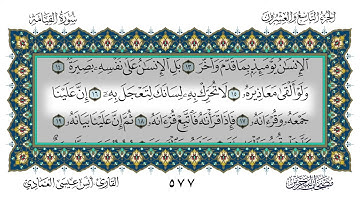 الجزء التاسع والعشرون
سورة القيامة
الإنسن يومئذ بما قدم وأخر ١٣ بل الإنسن على نفسه بصيرة ١٤
ولو ألقى معاذيره ١٥ لا تحرك به لسانك لتعجل به ١٦ إن علينا
جمعه وقرءانه ١٧ فإذا قرأنه فاتبع قرءانه ١٨ ثم إن علينا بيانه ١٩
٥٧٧
القارئ أنس عيسى العمادي